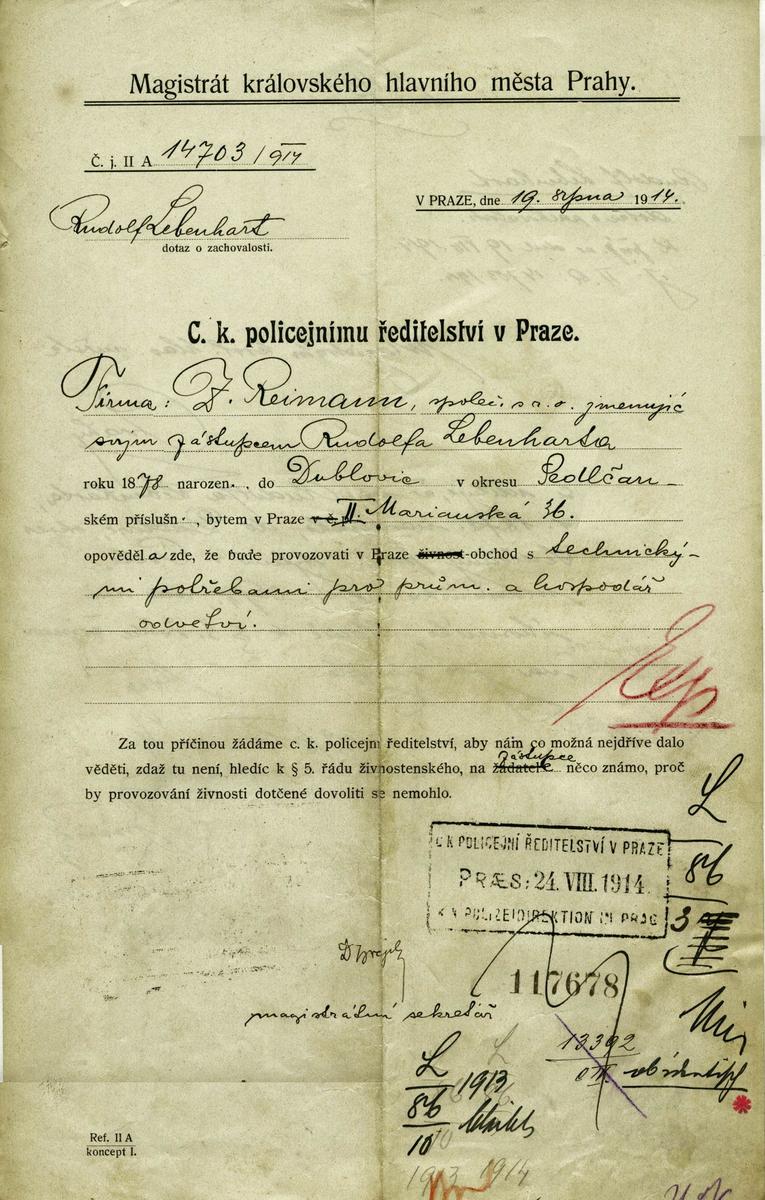 Magistrát královského hlavního města Prahy.
Č. j. II A 14703/914
V PRAZE, dne 19. srpna 1914.
Rudolf Lebenhart
dotaz o zachovalosti.
C. k. policejnímu ředitelství v Praze.
Firma: Z. Reimann, společ. s r. o. jmenujíc
svým zástupcem Rudolfa Lebenharta
roku 1878 narozen. , do Dublovic v okresu Sedlčan-
ském příslušn. , bytem v Praze v č. p. II. Marianská 36.
opověděla zde, že bude provozovati v Praze živnost-obchod s technický-
mi potřebami pro prům. a hospodář
odvětví.
Za tou příčinou žádáme c. k. policejní ředitelství, aby nám co možná nejdříve dalo
zástupce
věděti, zdaž tu není, hledíc k § 5. řádu živnostenského, na žadatele něco známo, proč
by provozování živnosti dotčené dovoliti se nemohlo.
L
86
3
C. K. POLICEJNÍ ŘEDITELSTVÍ V PRAZE
PRÆS: 24. VIII. 1914.
K. K. POLIZEIDIREKTION IN PRAG
117678
magistrátní sekretář
13392
L
86
10
1913
1913 1914
Ref. II A
koncept I.